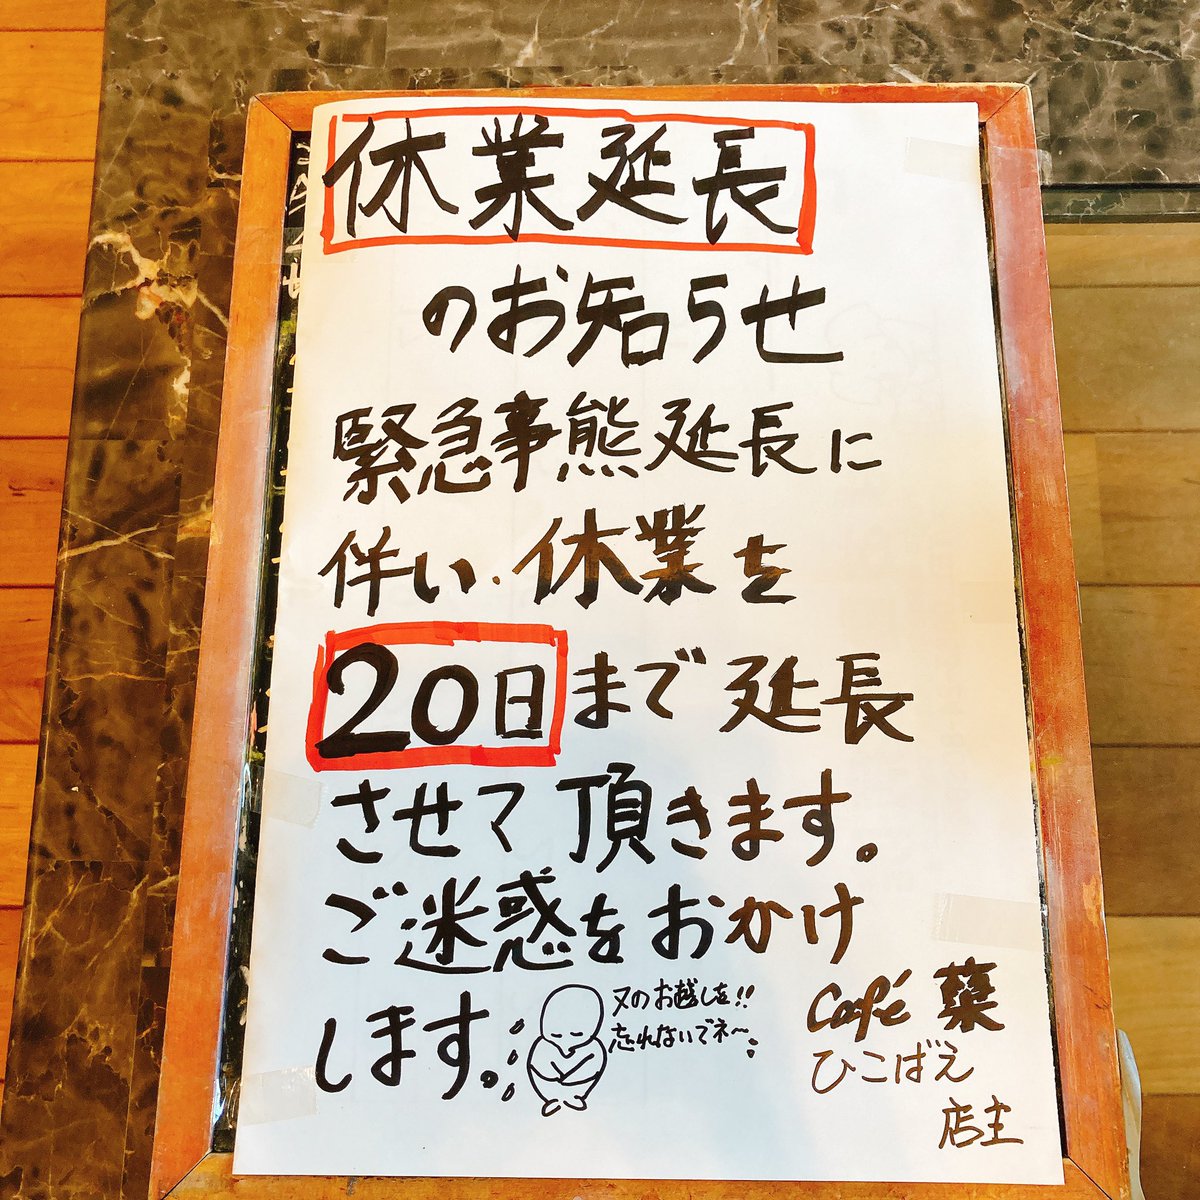 休業延長
のお知らせ
緊急事熊延長に
伴い、休業を
20日まで延長
させて頂きます。
ご迷惑をおかけ
します。
又のお越しを!!
忘れないでネ〜
Café 蘖
ひこばえ
店主